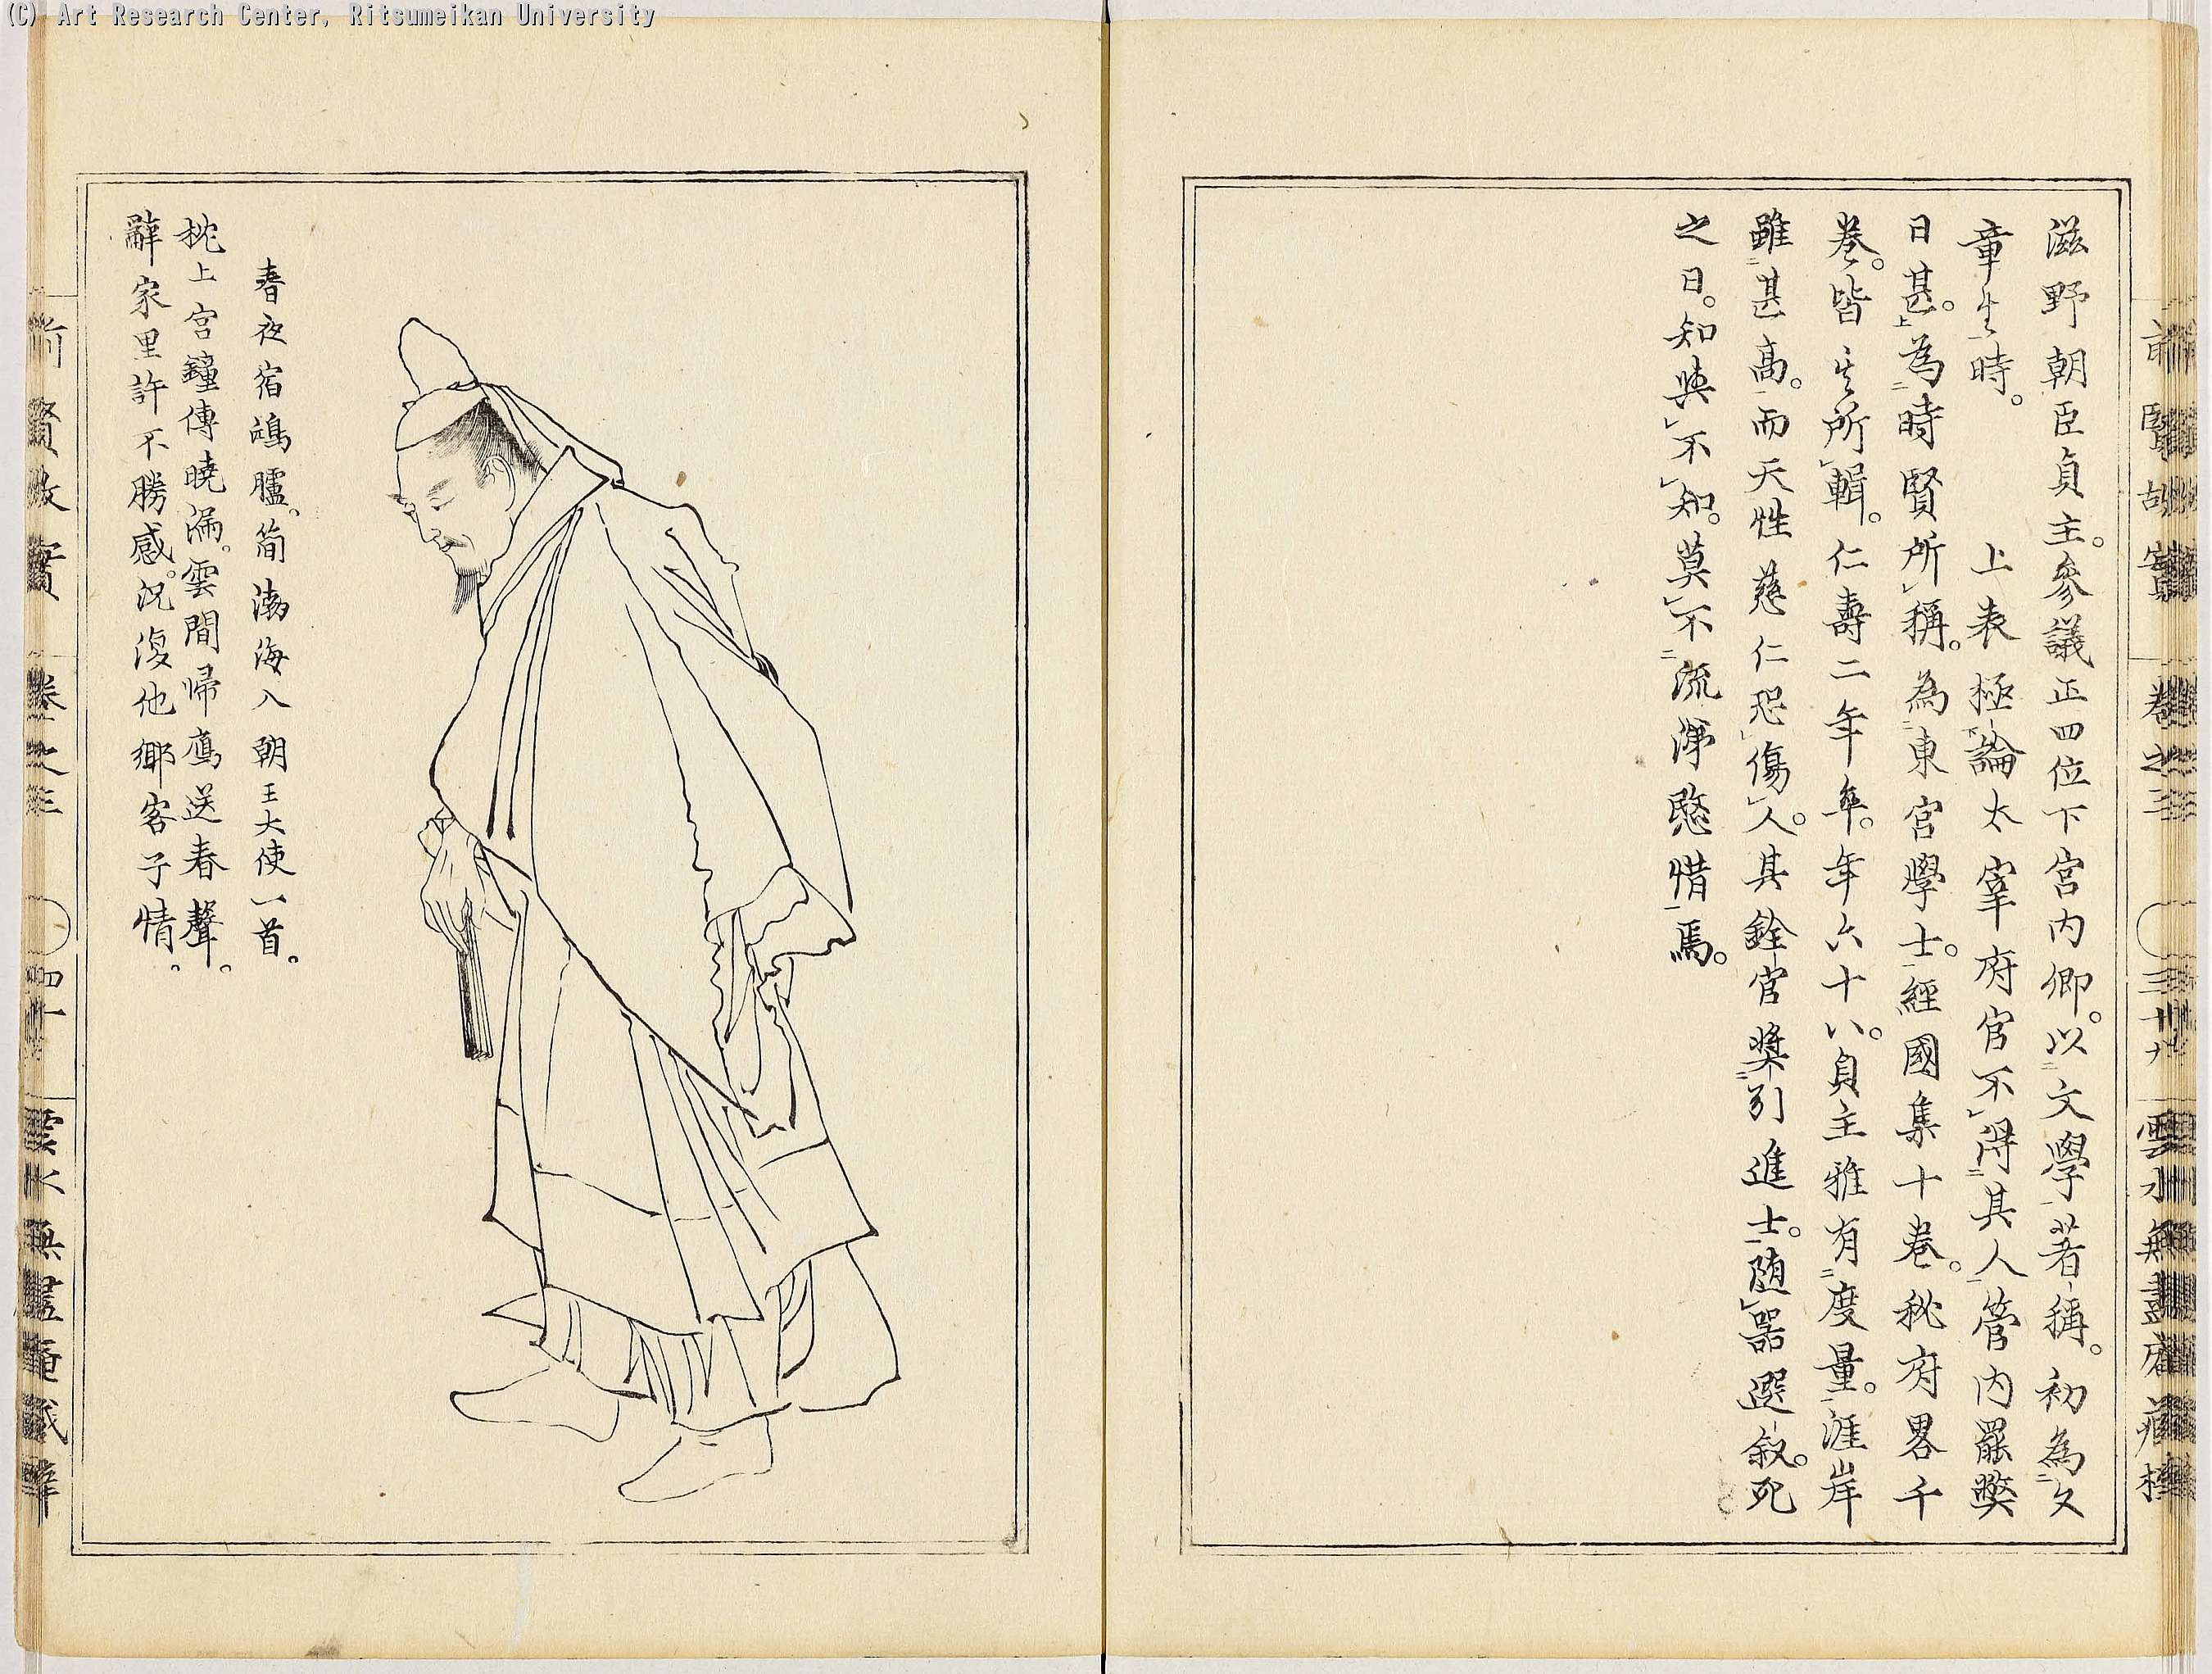 (C) Art Research Center, Ritsumeikan University
滋野朝臣貞主。參議正四位下宮内卿。以文學著稱。初為文
章生時。上表極論太宰府官不得其人管内罷弊
日甚。為時賢所稱。為東宮學士。經國集十卷。秘府畧千
卷。皆其所輯。仁壽二年卒。年六十八。貞主雅有度量。涯岸
雖甚高。而天性慈仁恐傷人。其銓官奬引進士。随器選叙。死
之日。知與不知。莫不流涕愍惜焉。
前賢故實 卷之三 雲水無盡庵
春夜宿鴻臚。簡渤海入朝王大使一首。
枕上宮鐘傳曉漏。雲間帰鴈送春聲。
辭家里許不勝感。況復他鄉客子情。
前賢故實 卷之三 四十 雲水無盡庵